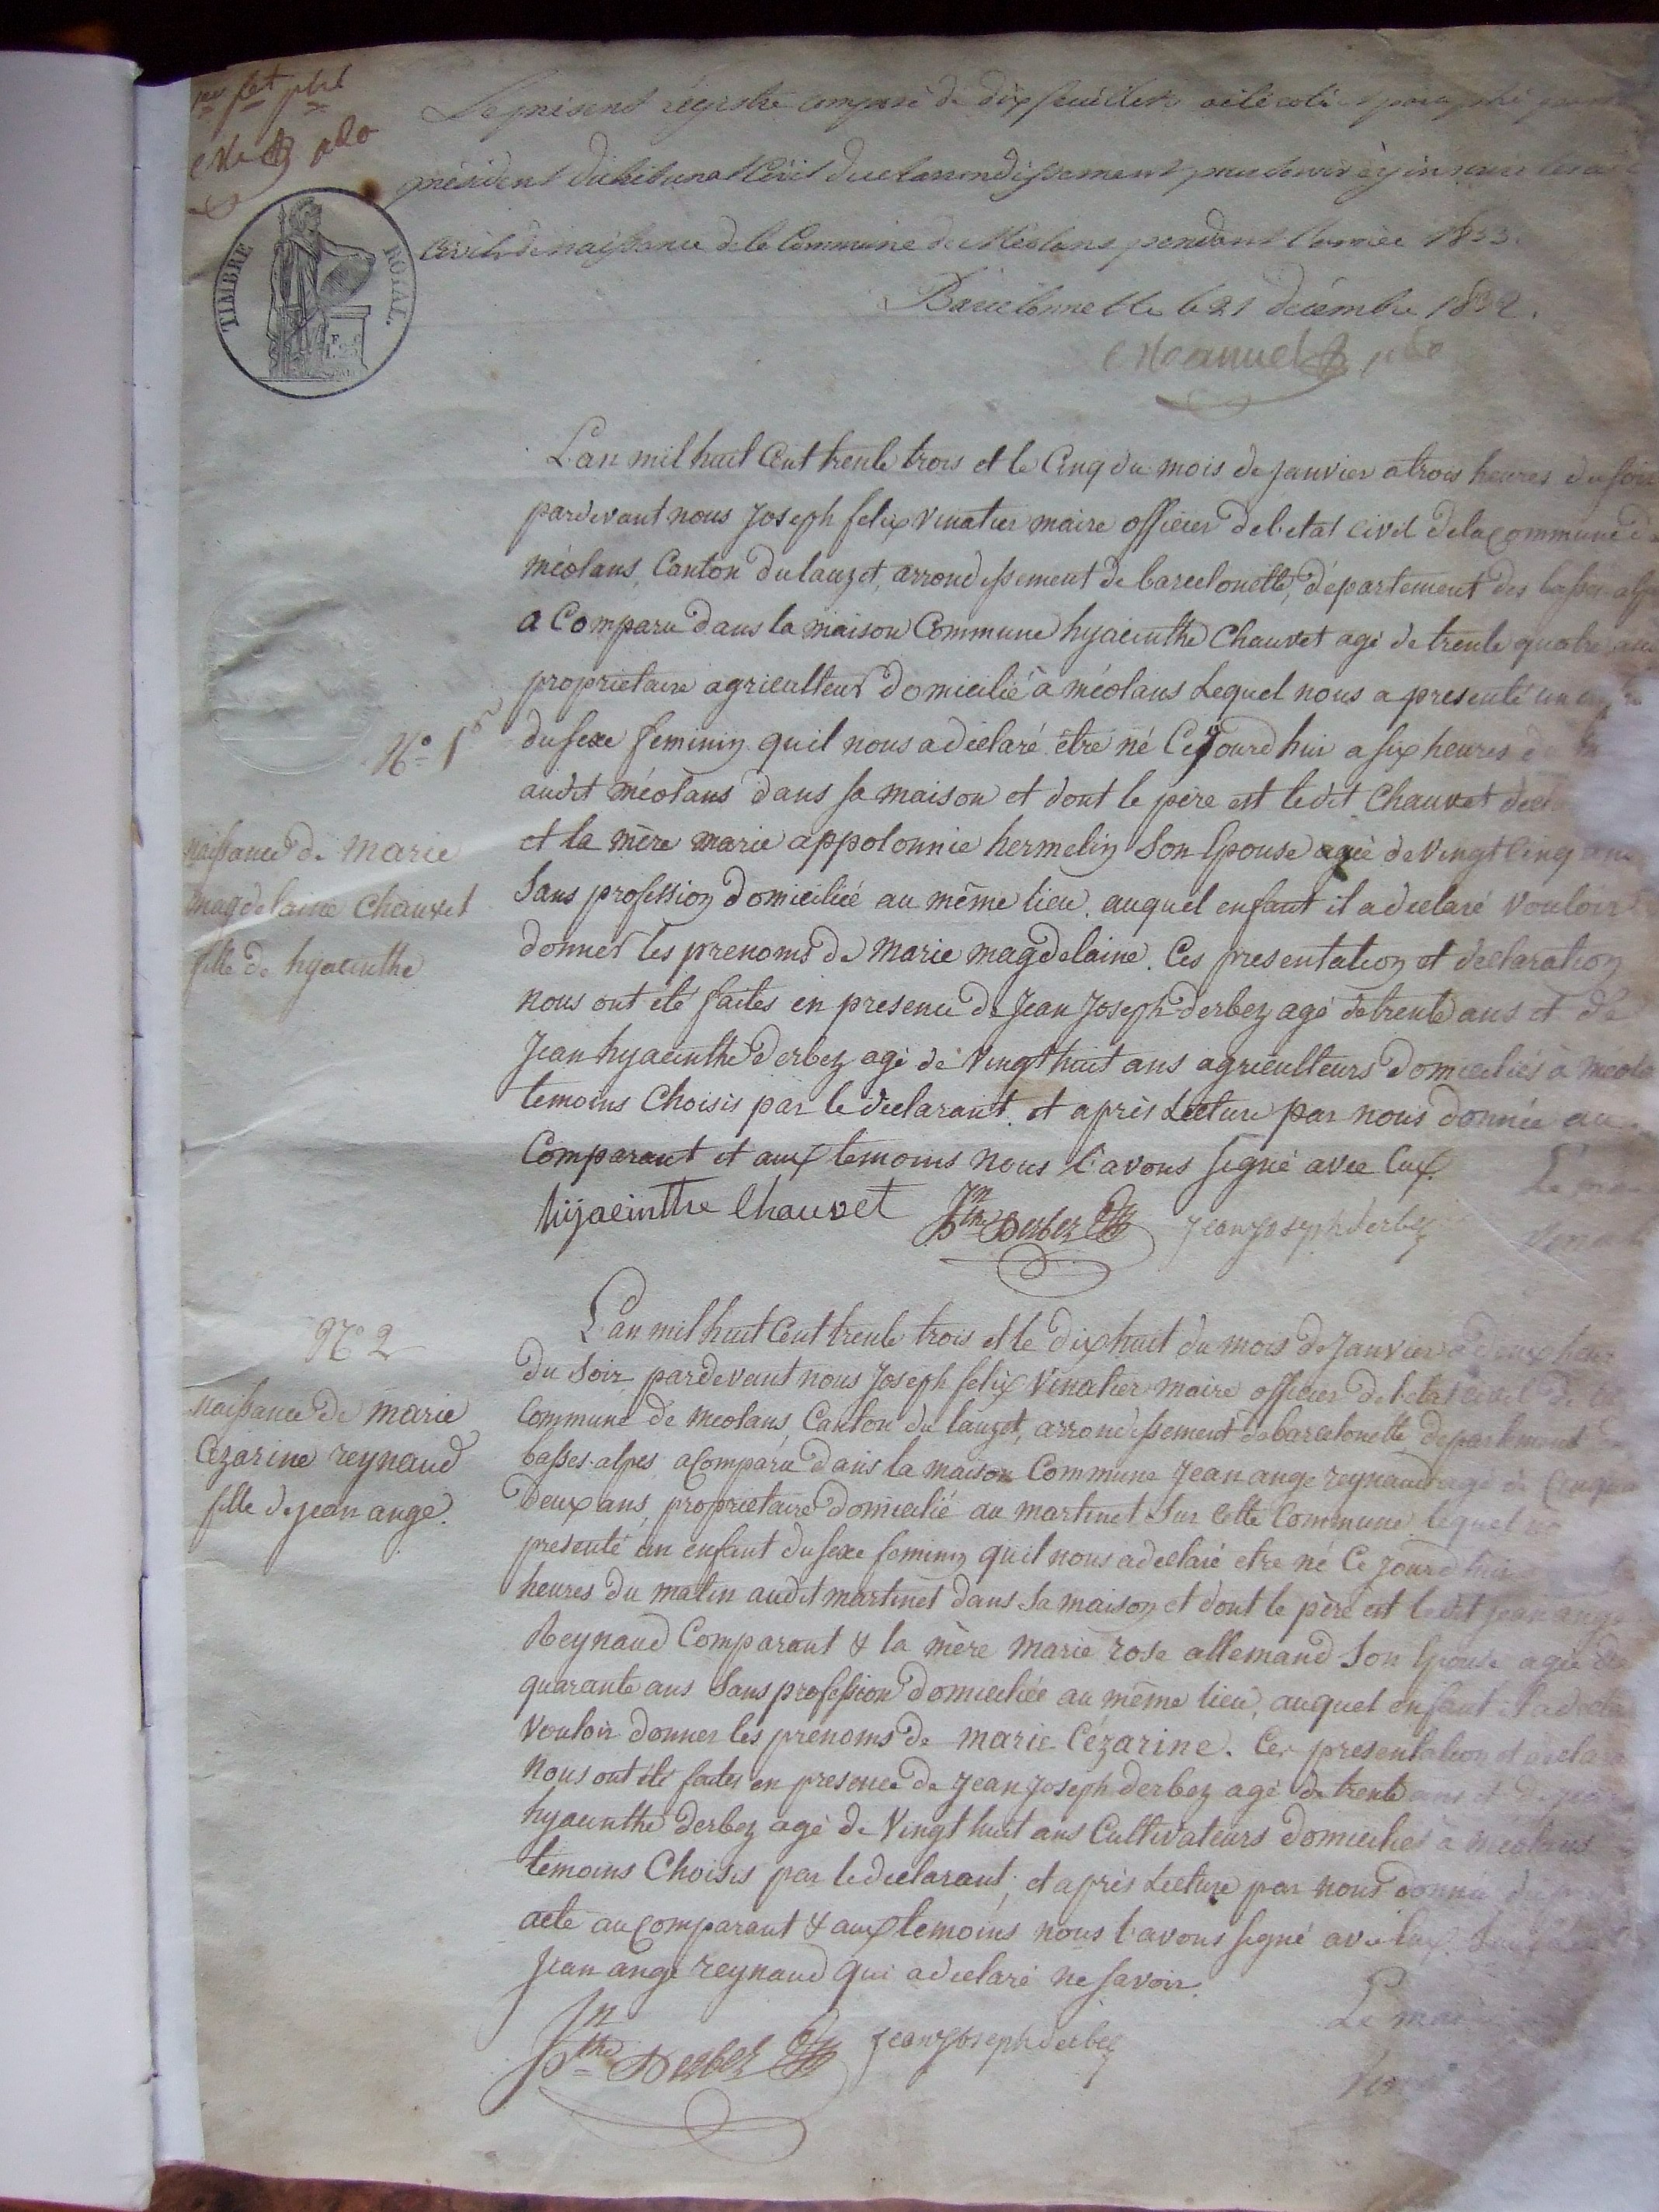 Le présent régistre composé de dix feuillets a été coté et paraphé par
président du tribunal Civil de l'arrondissement pour servir à y inscrire les
Civils de naissance de la Commune de Méolans pendant l'année 1833.
Barcelonnette le 21 décembre 1832.
TIMBRE ROYAL.
L'an mil huit Cent trente trois et le Cinq du mois de janvier a trois heures du soir
pardevant nous Joseph felix vinatier maire officier de l'etat civil de la commune de
méolans, Canton du lauzet, arrondissement de barcelonette, département des basses-alpes
a Comparu dans la maison Commune hyacinthe Chauvet agé de trente quatre ans
proprietaire agriculteur domicilié à méolans Lequel nous a presenté un
N.o 1er
du sexe feminin quil nous a déclaré être né Cejourd'hui a six heures
audit méolans dans sa maison et dont le père est ledit Chauvet
naissance de marie
magdelaine chauvet
fille de hyacinthe
et la mère marie appolonnie hermelin Son Epouse agée de vingt Cinq ans
Sans profession domiciliée au même lieu. auquel enfant il a declaré vouloir
donner les prenoms de marie magdelaine. Ces presentation et declaration
nous ont été faites en presence de Jean Joseph derbez agé de trente ans et de
Jean hyacinthe derbez agé de vingt huit ans agriculteurs domiciliés à
temoins Choisis par le declarant. et après Lecture par nous donnée au
Comparant et aux temoins nous l'avons signé avec Eux.
hijacinthe Chauvet Jn hthe Derbez jean joseph derbez
N.o 2
naissance de marie
Cezarine reynaud
fille de jean ange.
L'an mil huit Cent trente trois et le dix huit du mois de Janvier a deux heures
du Soir pardevant nous Joseph felix Vinatier maire officier de l'etat civil de
Commune de meolans, Canton du lauzet, arrondissement de barcelonette departement
basses-alpes a comparu dans la maison Commune Jean ange reynaud agé de
Deux ans, proprietaire domicilié au martinet Sur Cette Commune lequel
presenté un enfant du sexe feminin quil nous a declaré etre né Ce jourd'hui
heures du matin audit martinet dans sa maison et dont le père est ledit jean ange
Reynaud Comparant & la mère marie rose allemand Son Epouse agée de
quarante ans Sans profession domiciliée au même lieu, auquel enfant il a
vouloir donner les prenoms de marie Cézarine. Ces presentation et
nous ont été faites en presence de Jean Joseph derbez agé de trente ans et de
hyacinthe derbez agé de Vingt huit ans Cultivateurs domiciliés à meolans
temoins Choisis par le declarant, et après Lecture par nous donnée
acte au comparant & aux temoins nous l'avons signé avec Eux.
Jean ange reynaud qui a declaré ne savoir.
Jn hthe Derbez jean joseph derbez
Le